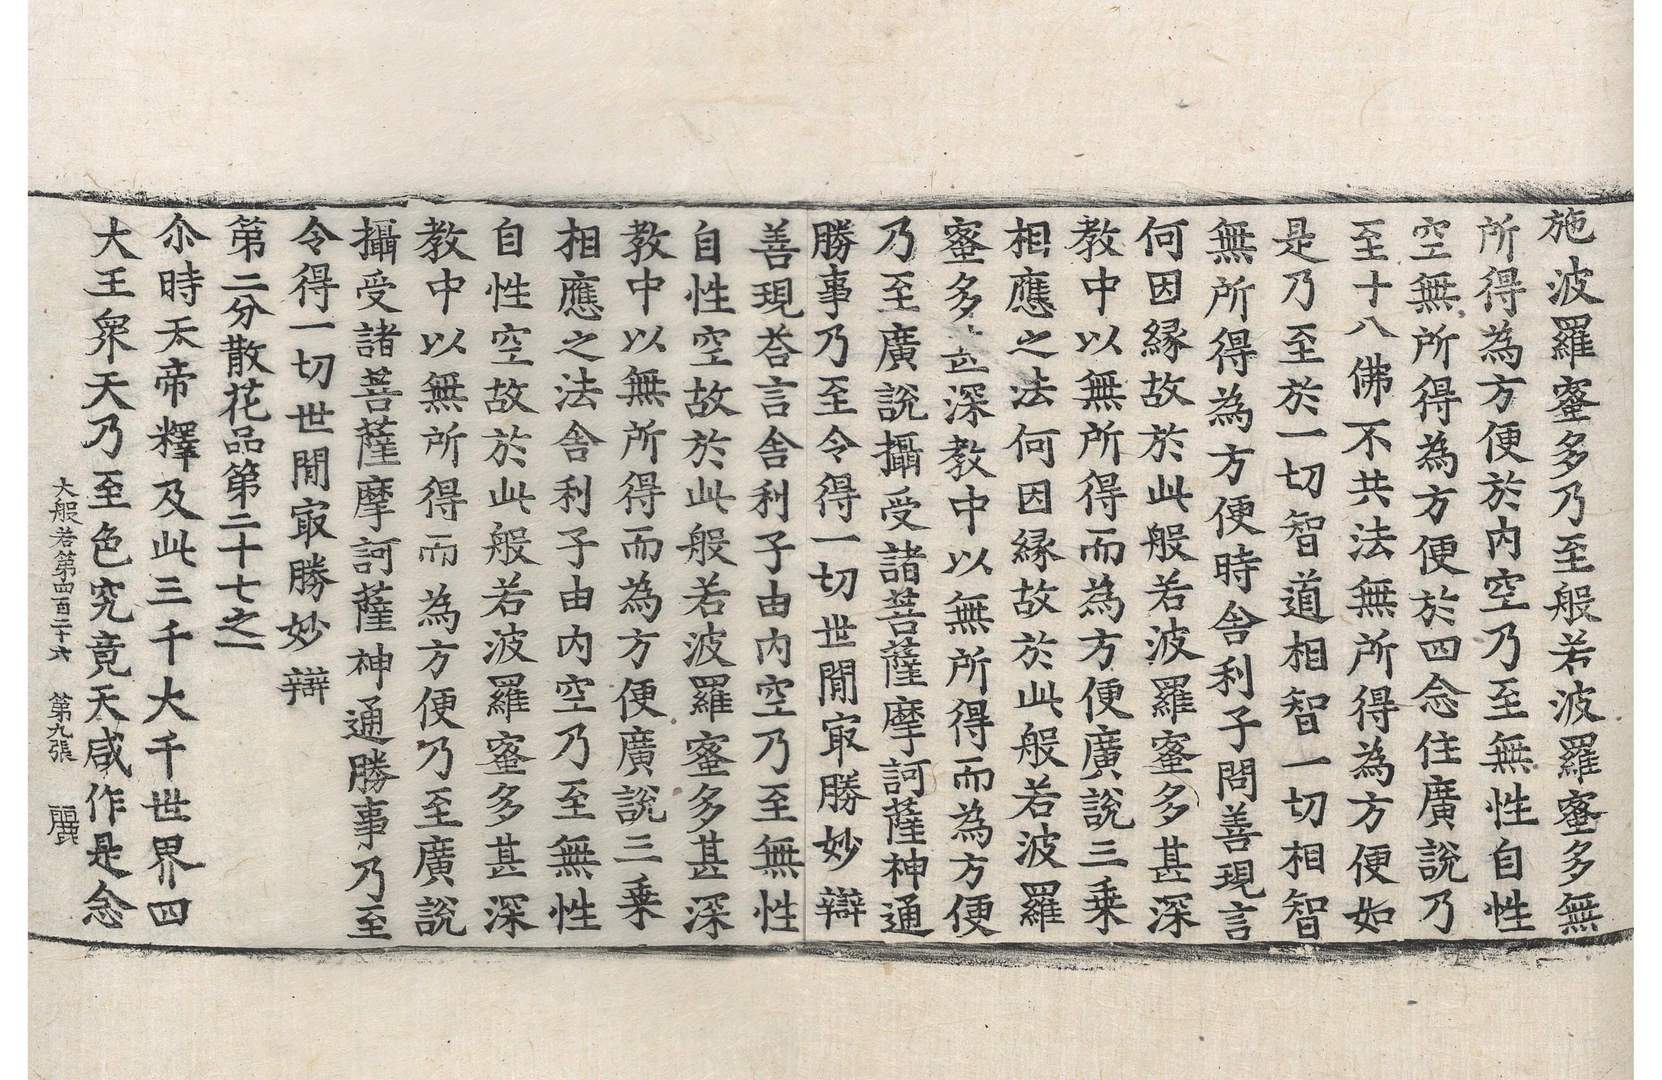 施波羅蜜多乃至般若波羅蜜多無
所得為方便於內空乃至無性自性
空無所得為方便於四念住廣說乃
至十八佛不共法無所得為方便如
是乃至於一切智道相智一切相智
無所得為方便時舍利子問善現言
何因緣故於此般若波羅蜜多甚深
教中以無所得而為方便廣說三乗
相應之法何因緣故於此般若波羅
蜜多甚深教中以無所得而為方便
乃至廣說攝受諸菩薩摩訶薩神通
勝事乃至令得一切世閒㝡勝妙辯
善現荅言舍利子由內空乃至無性
自性空故於此般若波羅蜜多甚深
教中以無所得而為方便廣說三乗
相應之法舍利子由內空乃至無性
自性空故於此般若波羅蜜多甚深
教中以無所得而為方便乃至廣說
攝受諸菩薩摩訶薩神通勝事乃至
令得一切世閒㝡勝妙辯
第二分散花品第二十七之一
尒時天帝釋及此三千大千世界四
大王衆天乃至色究竟天咸作是念
大般若第四百二十六 第九張 麗